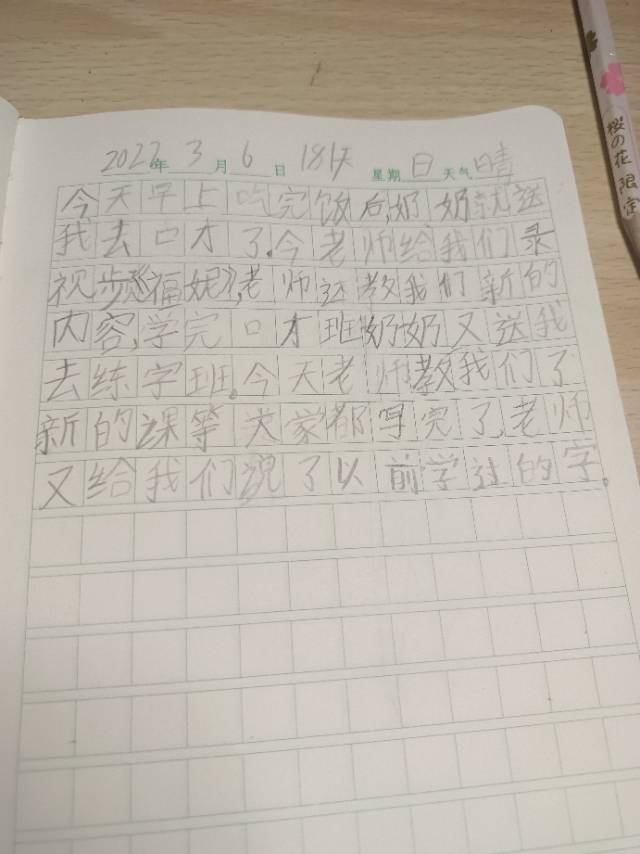 2022年3月6日 181天 星期日 天气晴
今天早上吃完饭后,奶奶就送
我去口才了。今老师给我们录
视步《福妮》,老师还教我们新的
内容,学完口才班奶奶又送我
去练字班。今天老师教我们了
新的课等大家都写完了,老师
又给我们说了以前学过的字。
桜の花 限定